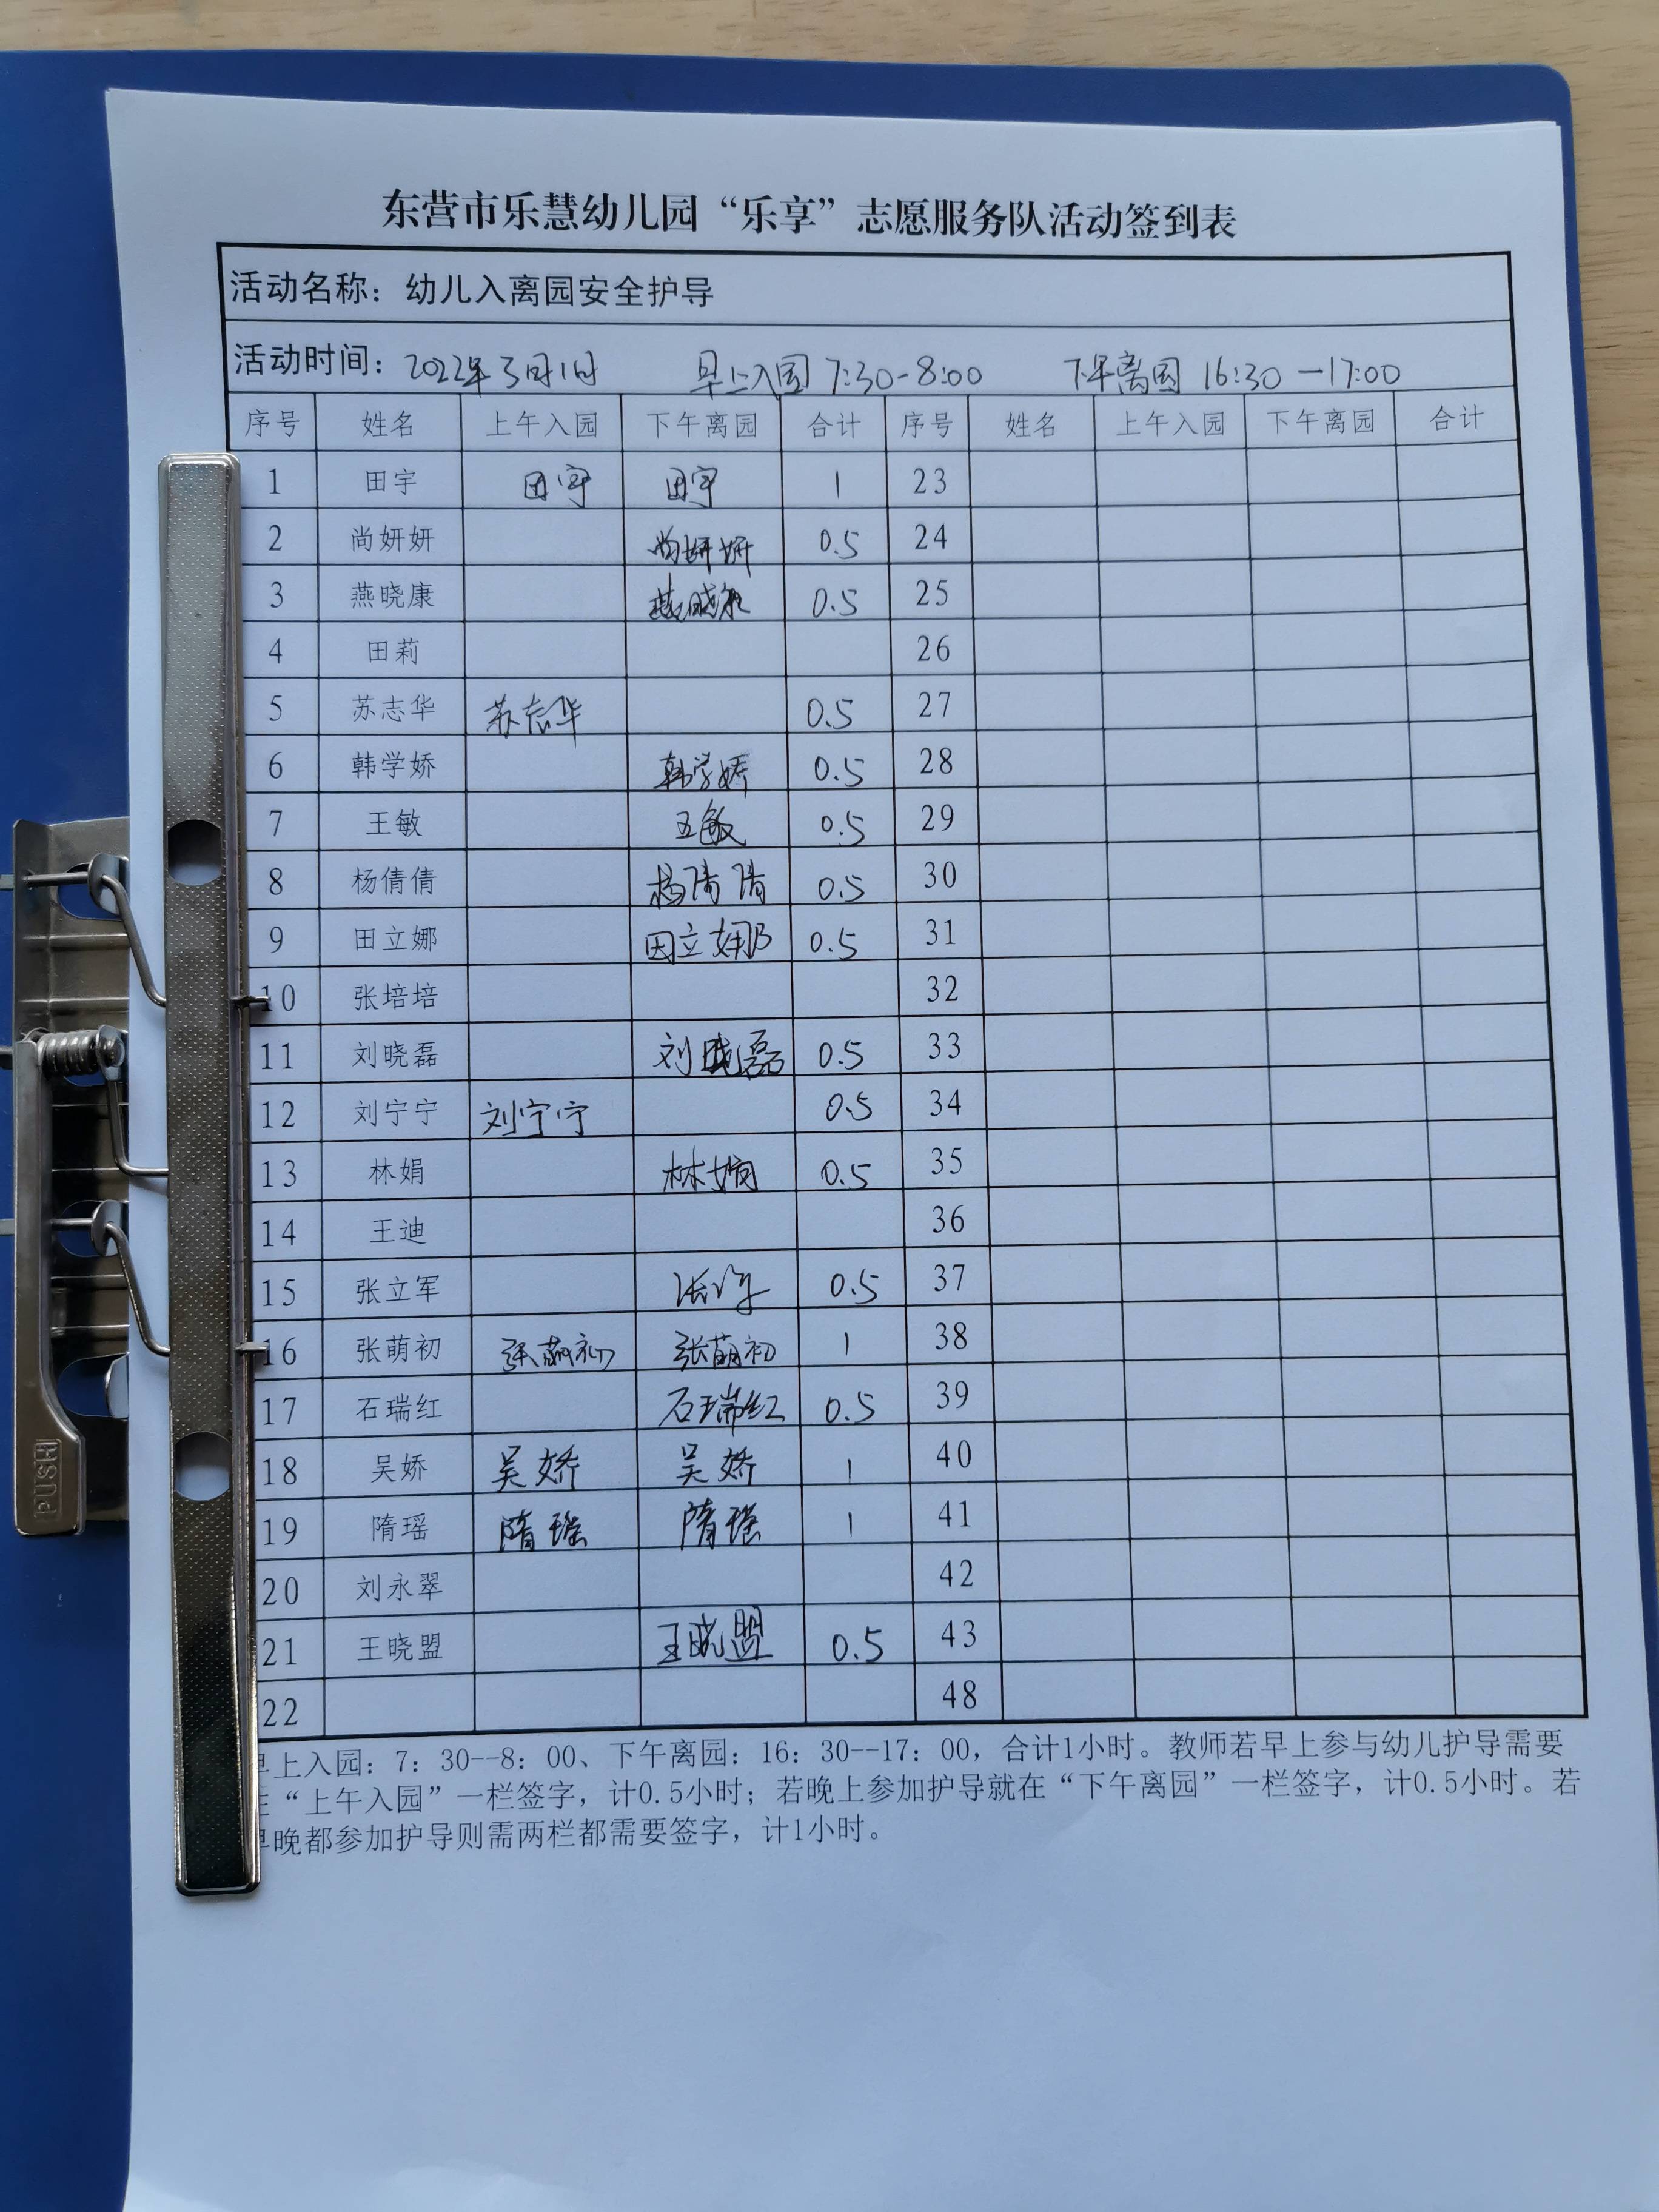 东营市乐慧幼儿园“乐享”志愿服务队活动签到表
活动名称：幼儿入离园安全护导
活动时间：2022年3月1日 早上入园 7:30-8:00 下午离园 16:30-17:00
序号 姓名 上午入园 下午离园 合计 序号 姓名 上午入园 下午离园 合计
1 田宇 田宇 田宇 1 23
2 尚妍妍 尚妍妍 0.5 24
3 燕晓康 燕晓康 0.5 25
4 田莉 26
5 苏志华 苏志华 0.5 27
6 韩学娇 韩学娇 0.5 28
7 王敏 王敏 0.5 29
8 杨倩倩 杨倩倩 0.5 30
9 田立娜 田立娜 0.5 31
10 张培培 32
11 刘晓磊 刘晓磊 0.5 33
12 刘宁宁 刘宁宁 0.5 34
13 林娟 林娟 0.5 35
14 王迪 36
15 张立军 0.5 37
16 张萌初 张萌初 张萌初 1 38
17 石瑞红 石瑞红 0.5 39
18 吴娇 吴娇 吴娇 1 40
19 隋瑶 隋瑶 隋瑶 1 41
20 刘永翠 42
21 王晓盟 王晓盟 0.5 43
22 48
早上入园：7：30--8：00、下午离园：16：30--17：00，合计1小时。教师若早上参与幼儿护导需要
在“上午入园”一栏签字，计0.5小时；若晚上参加护导就在“下午离园”一栏签字，计0.5小时。若
早晚都参加护导则需两栏都需要签字，计1小时。
PUSH